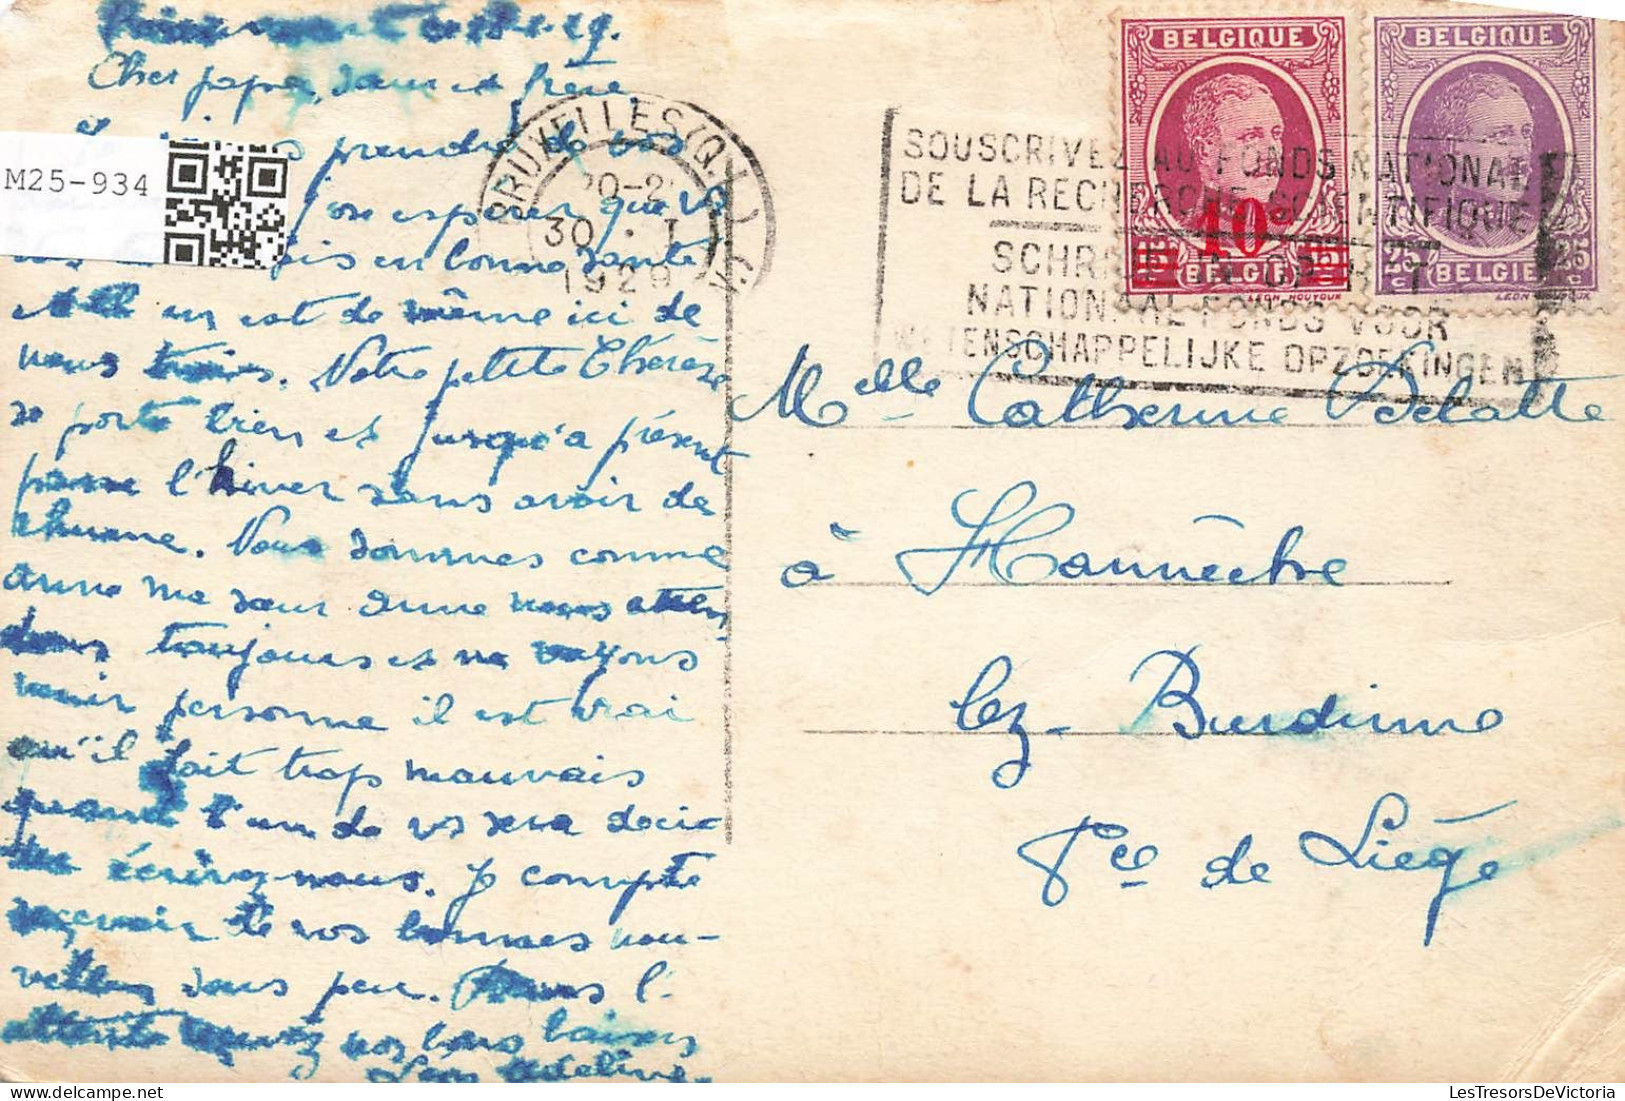 29.
Cher papa, sœur et frère,
prendre de vos
j'ose espérer que vs
en bonne santé
il en est de même ici de
nous trois. Votre petite Thérèse
se porte bien et jusqu'à présent
passe l'hiver sans avoir de
rhume. Nous sommes comme
anne ma sœur anne nous atten-
dons toujours et ne voyons
venir personne il est vrai
qu'il fait trop mauvais
quand l'un de vs sera décidé
écrivez-nous. Je compte
recevoir de vos bonnes nou-
velles sous peu. Dans l'
attente recevez nos bons baisers
Léon Adeline
M25-934
BRUXELLES (Q.L.)
30 . I
1929
SOUSCRIVEZ AU FONDS NATIONAL
DE LA RECHERCHE SCIENTIFIQUE
SCHRIJF IN OP HET
NATIONAAL FONDS VOOR
WETENSCHAPPELIJKE OPZOEKINGEN
BELGIQUE
10c
15c 15c
BELGIË
LEON HOUYOUX
BELGIQUE
25c 25c
BELGIË
LEON HOUYOUX
Melle Catherine Delatte
à Hannêche
lez-Burdinne
Pce de Liège
LesTresorsDeVictoria.com